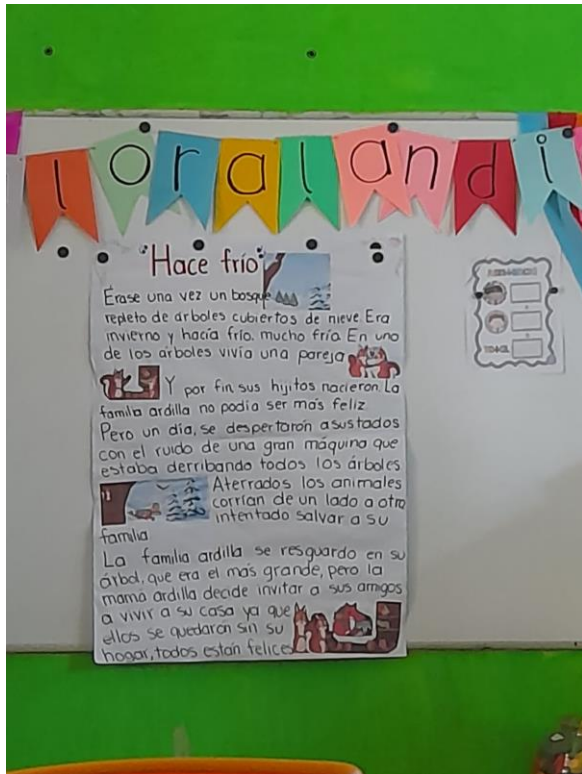 loralandi
"Hace frío"
Érase una vez un bosque
repleto de árboles cubiertos de nieve. Era
invierno y hacía frío. mucho frío. En uno
de los árboles vivía una pareja
Y por fin sus hijitos nacieron. La
familia ardilla no podía ser más feliz
Pero un día, se despertaron asustados
con el ruido de una gran máquina que
estaba derribando todos los árboles
Aterrados los animales
corrían de un lado a otro
intentado salvar a su
familia
La familia ardilla se resguardo en su
árbol, que era el más grande, pero la
mamá ardilla decide invitar a sus amigos
a vivir a su casa ya que
ellos se quedarón sin su
hogar, todos están felices